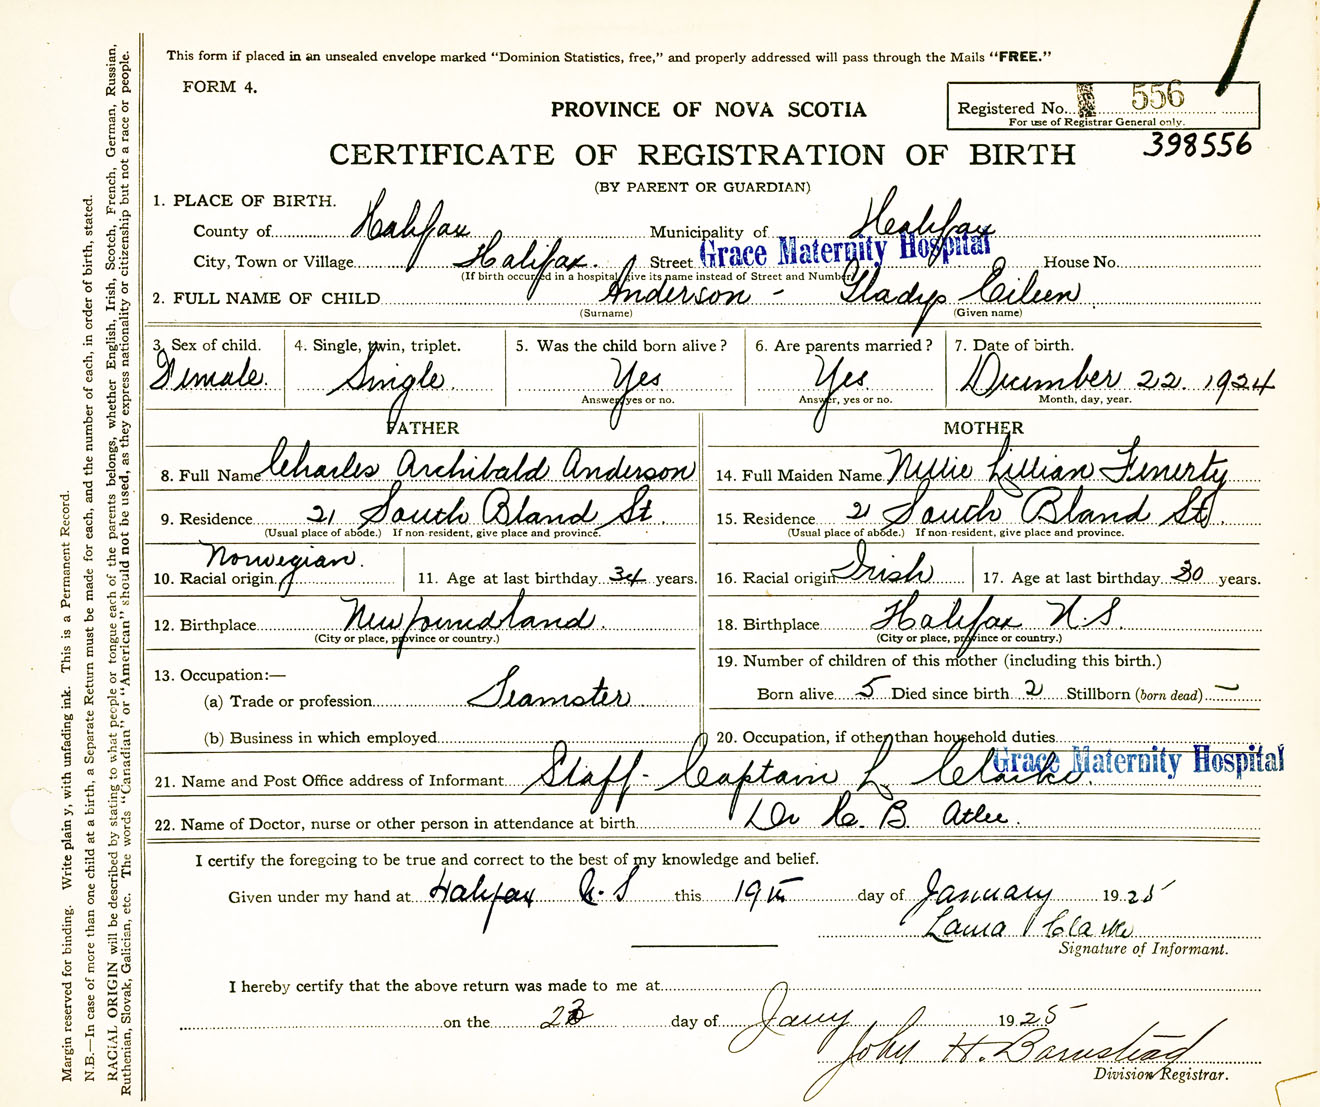 This form if placed in an unsealed envelope marked "Dominion Statistics, free," and properly addressed will pass through the Mails "FREE."
FORM 4.
PROVINCE OF NOVA SCOTIA
Registered No. 556
For use of Registrar General only.
398556
CERTIFICATE OF REGISTRATION OF BIRTH
(BY PARENT OR GUARDIAN)
1. PLACE OF BIRTH.
County of Halifax Municipality of Halifax
City, Town or Village Halifax. Street Grace Maternity Hospital House No.
(If birth occurred in a hospital, give its name instead of Street and Number)
2. FULL NAME OF CHILD Anderson - Gladys Eileen
(Surname) (Given name)
3. Sex of child. 4. Single, twin, triplet. 5. Was the child born alive? 6. Are parents married? 7. Date of birth.
Female. Single. Yes Yes. December 22. 1924
Answer, yes or no. Answer, yes or no. Month, day, year.
FATHER MOTHER
8. Full Name Charles Archibald Anderson 14. Full Maiden Name Nellie Lillian Fenerty
9. Residence 21 South Bland St. 15. Residence 21 South Bland St.
(Usual place of abode.) If non-resident, give place and province. (Usual place of abode.) If non-resident, give place and province.
10. Racial origin Norwegian. 11. Age at last birthday 34 years. 16. Racial origin Irish 17. Age at last birthday 30 years.
12. Birthplace Newfoundland. 18. Birthplace Halifax N.S.
(City or place, province or country.) (City or place, province or country.)
13. Occupation:— 19. Number of children of this mother (including this birth.)
(a) Trade or profession Teamster Born alive 5 Died since birth 2 Stillborn (born dead) —
(b) Business in which employed 20. Occupation, if other than household duties
21. Name and Post Office address of Informant Staff-Captain L. Clarke. Grace Maternity Hospital
22. Name of Doctor, nurse or other person in attendance at birth Dr H. B. Atlee.
I certify the foregoing to be true and correct to the best of my knowledge and belief.
Given under my hand at Halifax N.S this 19th day of January 1925
Laura Clarke
Signature of Informant.
I hereby certify that the above return was made to me at
on the 23 day of Jany 1925
John H. Barnstead
Division Registrar.
Margin reserved for binding. Write plainly, with unfading ink. This is a Permanent Record.
N.B.—In case of more than one child at a birth, a Separate Return must be made for each, and the number of each, in order of birth, stated.
RACIAL ORIGIN will be described by stating to what people or tongue each of the parents belongs, whether English, Irish, Scotch, French, German, Russian,
Ruthenian, Slovak, Galician, etc. The words "Canadian" or "American" should not be used, as they express nationality or citizenship but not a race or people.